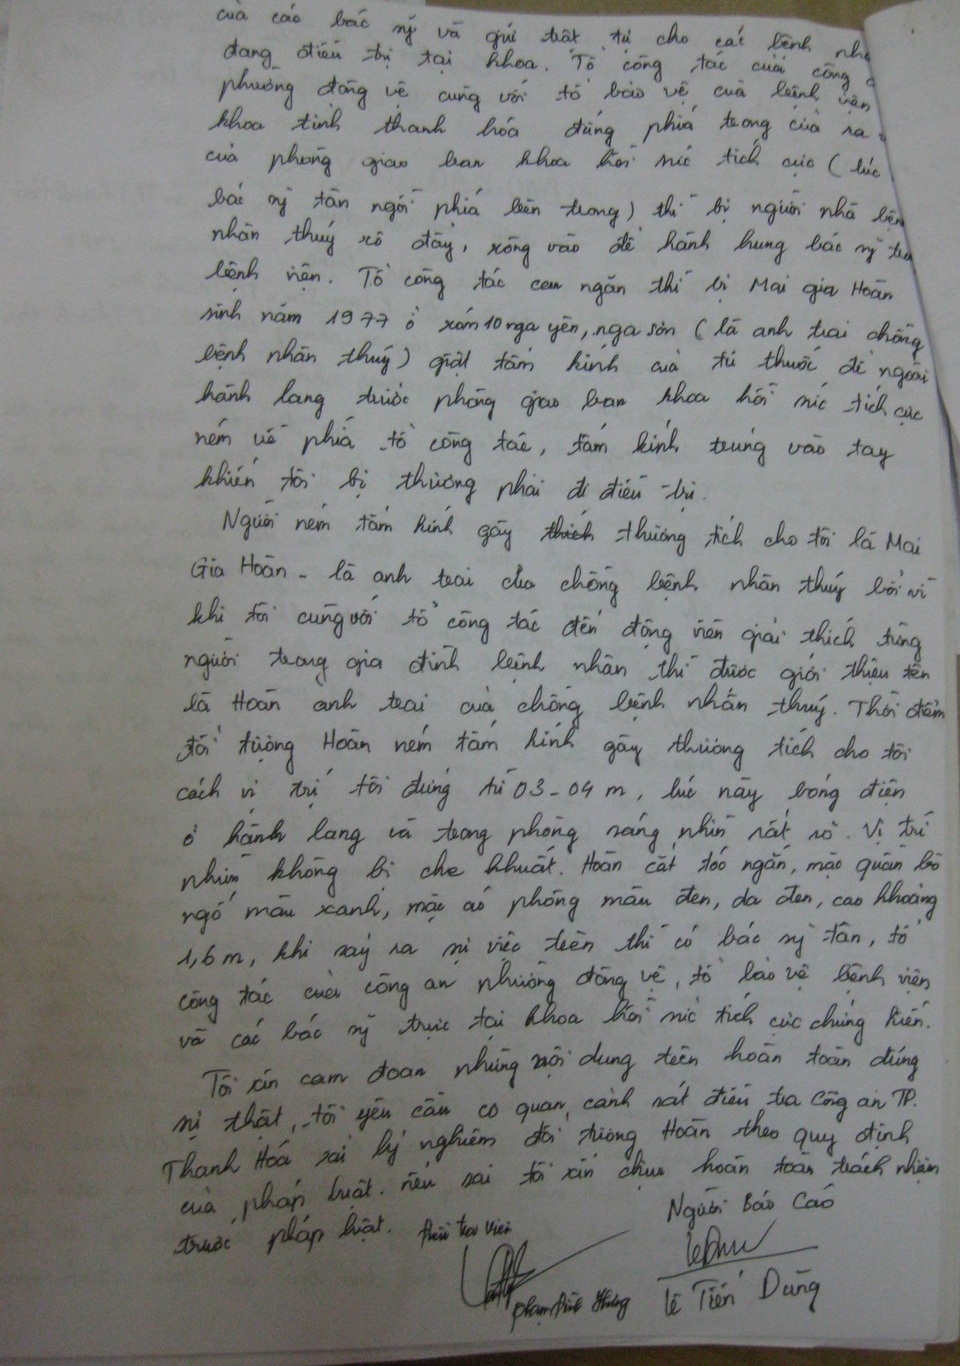 của các bác sỹ và giữ trật tự cho các bệnh
đang điều trị tại khoa. Tổ công tác của công
phường đông vệ cùng với tổ bảo vệ của bệnh viện
khoa tỉnh thanh hóa đứng phía trong cửa ra
của phòng giao ban khoa hồi sức tích cực (lúc
bác sỹ tân ngồi phía bên trong) thì bị người nhà bện
nhân thuý xô đẩy, xông vào để hành hung bác sỹ
bệnh viện. Tổ công tác can ngăn thì bị Mai gia Hoàn
sinh năm 1977 ở xóm 10 nga yên, nga sơn (là anh trai chồng
bệnh nhân thuý) giật tấm kính của tủ thuốc để ngoài
hành lang trước phòng giao ban khoa hồi sức tích cực
ném về phía tổ công tác, tấm kính trúng vào tay
khiến tôi bị thương phải đi điều trị.
Người ném tấm kính gây thương tích cho tôi là Mai
Gia Hoàn - là anh trai của chồng bệnh nhân thuý bởi vì
khi tôi cùng với tổ công tác đến động viên giải thích từng
người trong gia đình bệnh nhân thì được giới thiệu tên
là Hoàn anh trai của chồng bệnh nhân thuý. Thời điểm
đối tượng Hoàn ném tấm kính gây thương tích cho tôi
cách vị trí tôi đứng từ 03-04 m, lúc này bóng điện
ở hành lang và trong phòng sáng, nhìn rất rõ. Vị trí
nhìn không bị che khuất. Hoàn cắt tóc ngắn, mặc quần bò
ngố màu xanh, mặc áo phông màu đen, da đen, cao khoảng
1,6 m, khi xảy ra sự việc trên thì có bác sỹ tân, tổ
công tác của công an phường đông vệ, tổ bảo vệ bệnh viện
và các bác sỹ trực tại khoa hồi sức tích cực chứng kiến.
Tôi xin cam đoan những nội dung trên hoàn toàn đúng
sự thật, tôi yêu cầu cơ quan cảnh sát điều tra Công an TP.
Thanh Hoá xử lý nghiêm đối tượng Hoàn theo quy định
của pháp luật. nếu sai tôi xin chịu hoàn toàn trách nhiệm
trước pháp luật.
Điều tra viên
Người Báo Cáo
Lê Tiến Dũng